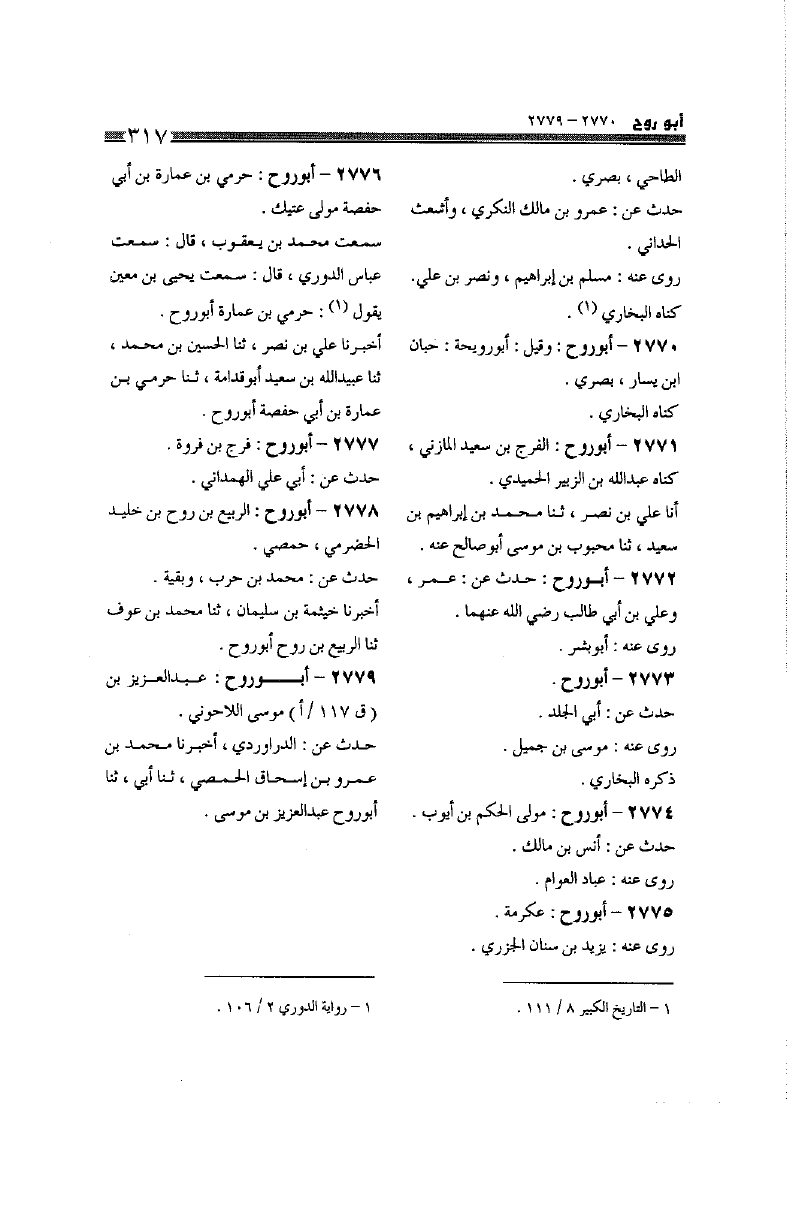 أبو روح ٢٧٧٠ – ٢٧٧٩
٣١٧
الطاحي ، بصري .
حدث عن : عمرو بن مالك النكري ، وأشعث
الحداني .
روى عنه : مسلم بن إبراهيم ، ونصر بن علي.
كناه البخاري (١) .
٢٧٧٠ – أبوروح : وقيل : أبورويحة : حبان
ابن يسار ، بصري .
كناه البخاري .
٢٧٧١ – أبوروح : الفرج بن سعيد المازني ،
كناه عبدالله بن الزبير الحميدي .
أنا علي بن نصر ، ثنا محمد بن إبراهيم بن
سعيد ، ثنا محبوب بن موسى أبوصالح عنه .
٢٧٧٢ – أبوروح : حدث عن : عمر ،
وعلي بن أبي طالب رضي الله عنهما .
روى عنه : أبوبشر .
٢٧٧٣ – أبوروح .
حدث عن : أبي الجلد .
روى عنه : موسى بن جميل .
ذكره البخاري .
٢٧٧٤ – أبوروح : مولى الحكم بن أيوب .
حدث عن : أنس بن مالك .
روى عنه : عباد العوام .
٢٧٧٥ – أبوروح : عكرمة .
روى عنه : يزيد بن سنان الجزري .
١ – التاريخ الكبير ٨ / ١١١ .
٢٧٧٦ – أبوروح : حرمي بن عمارة بن أبي
حفصة مولى عتيك .
سمعت محمد بن يعقوب ، قال : سمعت
عباس الدوري ، قال : سمعت يحيى بن معين
يقول (١) : حرمي بن عمارة أبوروح .
أخبرنا علي بن نصر ، ثنا الحسين بن محمد ،
ثنا عبيدالله بن سعيد أبوقدامة ، ثنا حرمي بن
عمارة بن أبي حفصة أبوروح .
٢٧٧٧ – أبوروح : فرج بن فروة .
حدث عن : أبي علي الهمداني .
٢٧٧٨ – أبوروح : الربيع بن روح بن خليد
الحضرمي ، حمصي .
حدث عن : محمد بن حرب ، وبقية .
أخبرنا خيثمة بن سليمان ، ثنا محمد بن عوف
ثنا الربيع بن روح أبوروح .
٢٧٧٩ – أبوروح : عبدالعزيز بن
( ق ١١٧ / أ ) موسى اللاحوني .
حدث عن : الدراوردي ، أخبرنا محمد بن
عمرو بن إسحاق الحمصي ، ثنا أبي ، ثنا
أبوروح عبدالعزيز بن موسى .
١ – رواية الدوري ٢ / ١٠٦ .